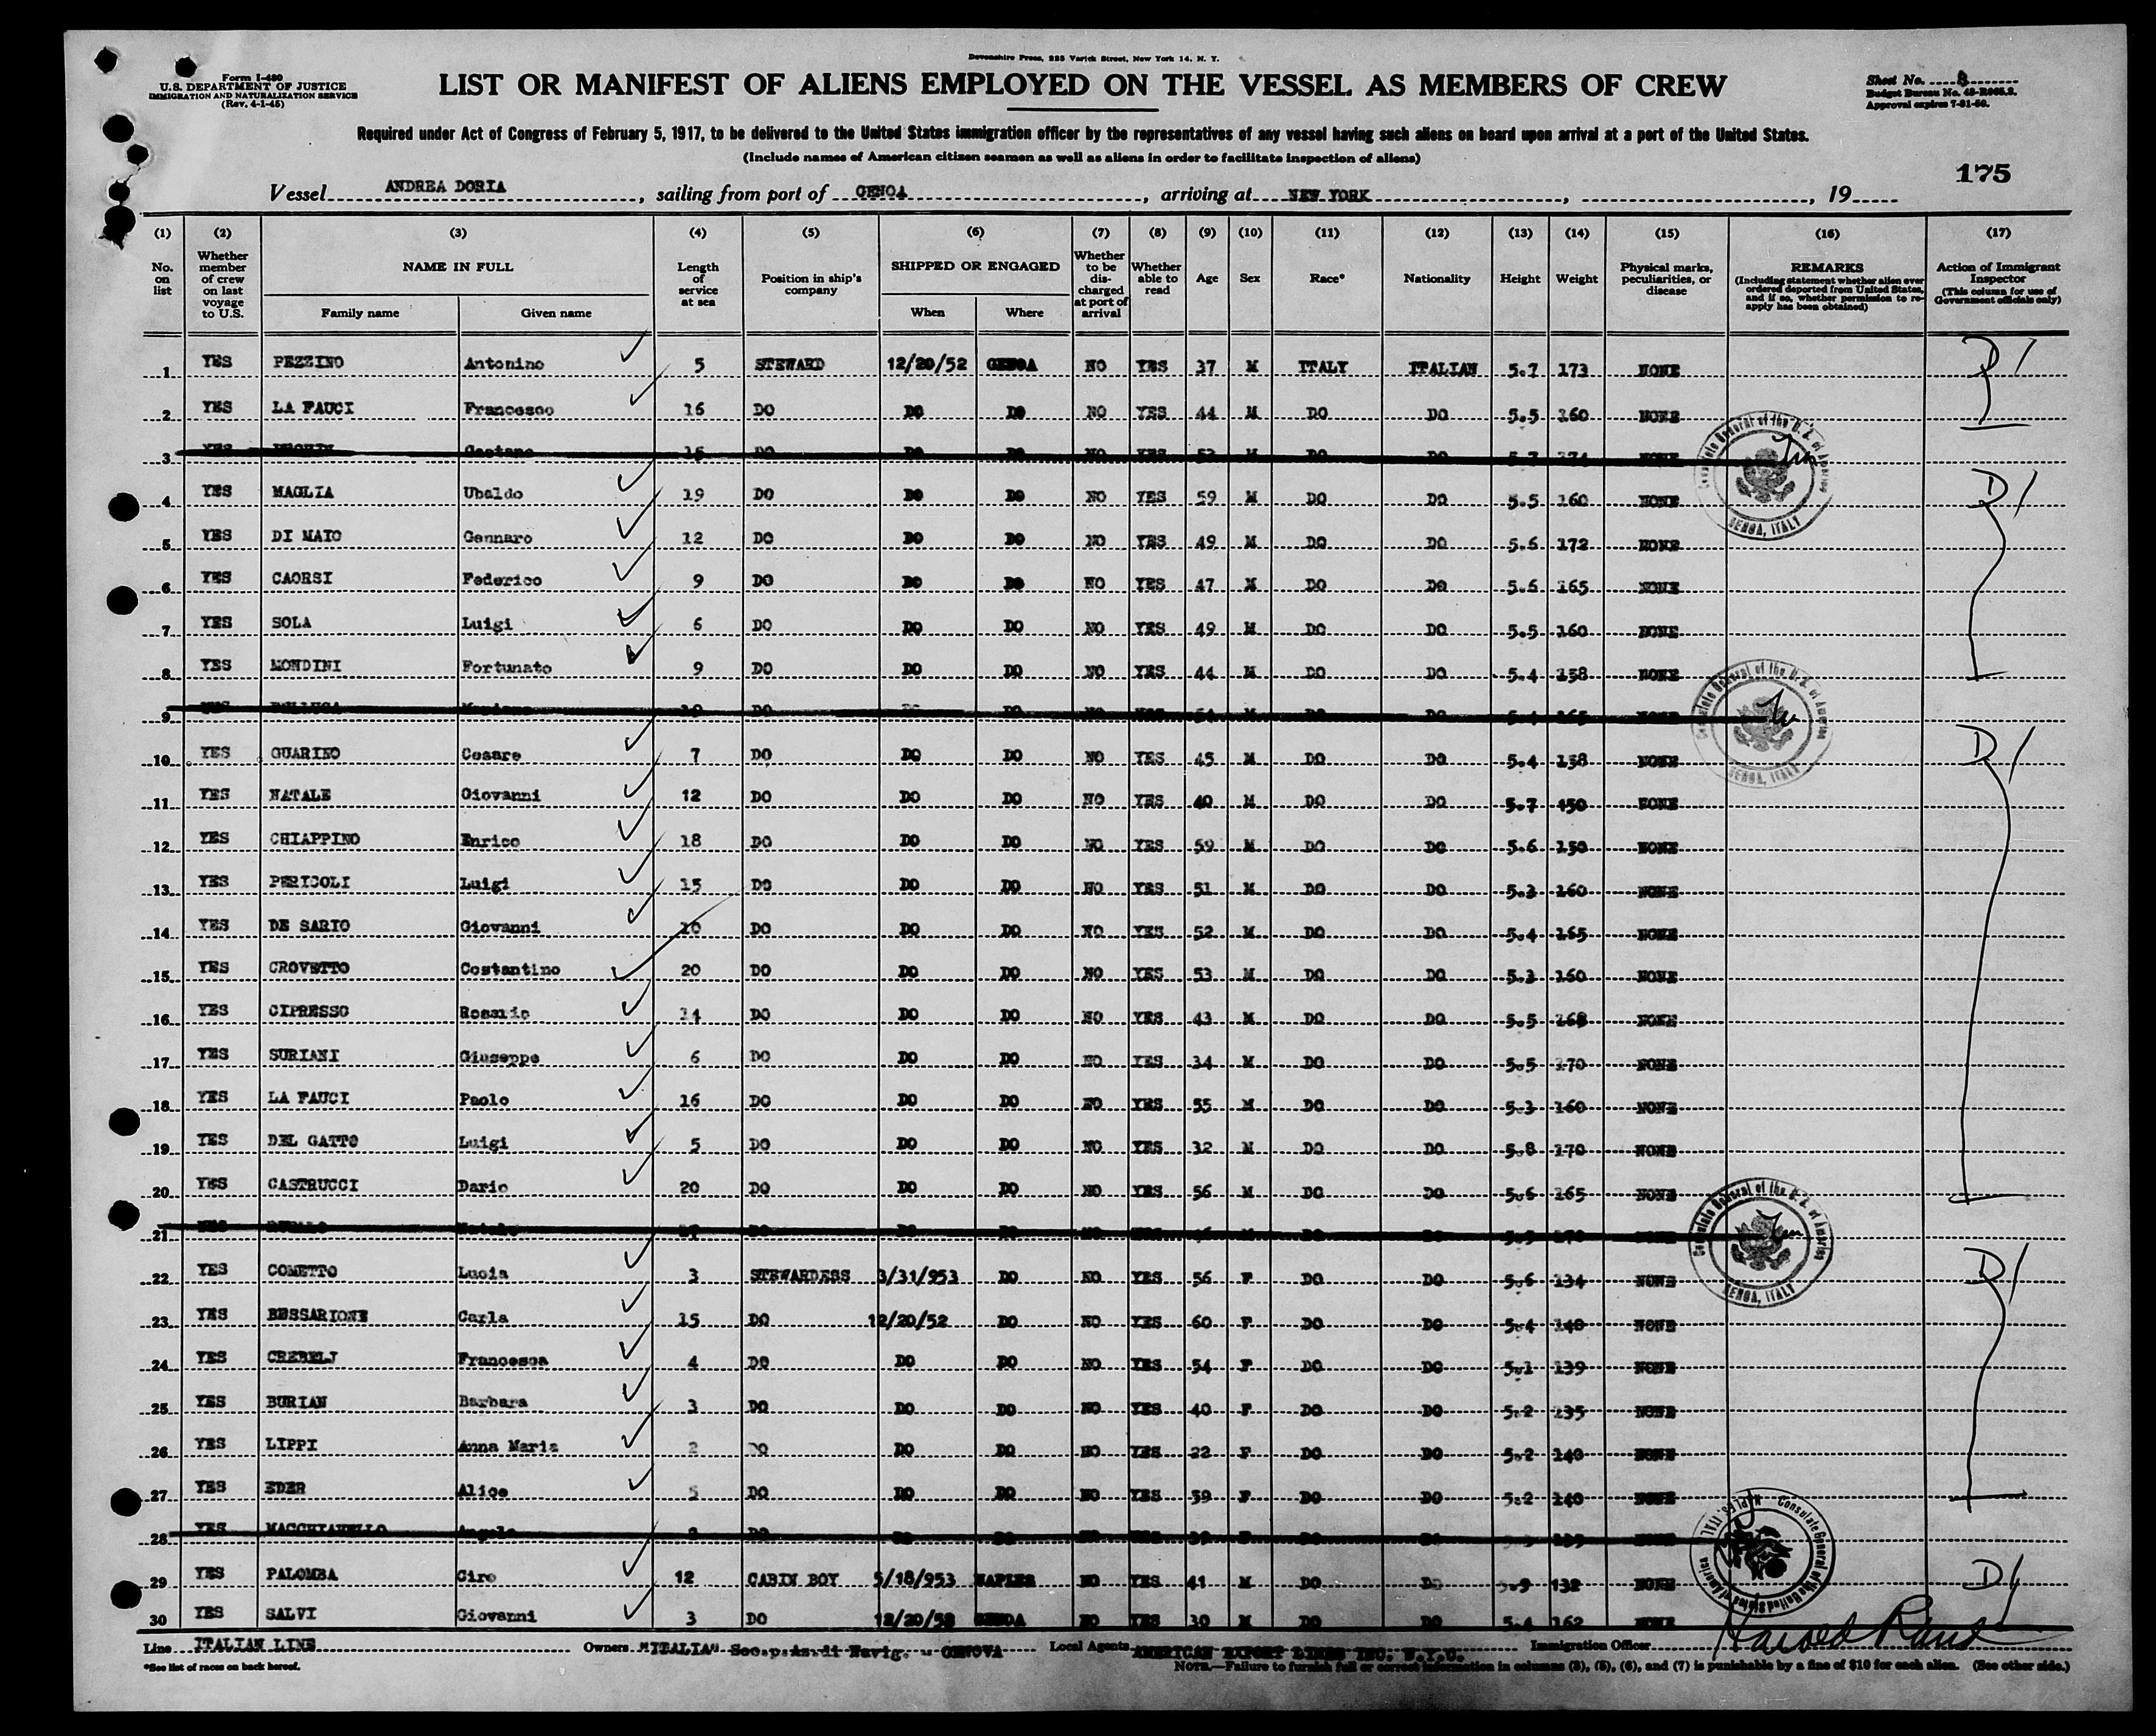 Devonshire Press, 225 Varick Street, New York 14, N. Y.
Form I-480
U.S. DEPARTMENT OF JUSTICE
IMMIGRATION AND NATURALIZATION SERVICE
(Rev. 4-1-45)
LIST OR MANIFEST OF ALIENS EMPLOYED ON THE VESSEL AS MEMBERS OF CREW
Sheet No. 8
Budget Bureau No. 43-R065.2.
Approval expires 7-31-50.
Required under Act of Congress of February 5, 1917, to be delivered to the United States immigration officer by the representatives of any vessel having such aliens on board upon arrival at a port of the United States.
(Include names of American citizen seamen as well as aliens in order to facilitate inspection of aliens)
175
Vessel ANDREA DORIA, sailing from port of GENOA, arriving at NEW YORK, , 19
(1) (2) (3) (4) (5) (6) (7) (8) (9) (10) (11) (12) (13) (14) (15) (16) (17)
No. on list
Whether member of crew on last voyage to U.S.
NAME IN FULL
Family name
Given name
Length of service at sea
Position in ship's company
SHIPPED OR ENGAGED
When
Where
Whether to be discharged at port of arrival
Whether able to read
Age
Sex
Race*
Nationality
Height
Weight
Physical marks, peculiarities, or disease
REMARKS
(Including statement whether alien ever ordered deported from United States, and if so, whether permission to reapply has been obtained)
Action of Immigrant Inspector
(This column for use of Government officials only)
1 YES PEZZINO Antonino 5 STEWARD 12/20/52 GENOA NO YES 37 M ITALY ITALIAN 5.7 173 NONE D1
2 YES LA FAUCI Francesco 16 DO DO DO NO YES 44 M DO DO 5.5 160 NONE
3 YES Gaetano DO DO DO NO YES M DO DO 5.7 174 NONE
4 YES MAGLIA Ubaldo 19 DO DO DO NO YES 59 M DO DO 5.5 160 NONE D1
5 YES DI MAIO Gennaro 12 DO DO DO NO YES 49 M DO DO 5.6 172 NONE
6 YES CAORSI Federico 9 DO DO DO NO YES 47 M DO DO 5.6 165 NONE
7 YES SOLA Luigi 6 DO DO DO NO YES 49 M DO DO 5.5 160 NONE
8 YES MONDINI Fortunato 9 DO DO DO NO YES 44 M DO DO 5.4 158 NONE
9 DO DO NO M DO DO NONE
10 YES GUARINO Cesare 7 DO DO DO NO YES 45 M DO DO 5.4 158 NONE D1
11 YES NATALE Giovanni 12 DO DO DO NO YES 40 M DO DO 5.7 150 NONE
12 YES CHIAPPINO Enrico 18 DO DO DO NO YES 59 M DO DO 5.6 150 NONE
13 YES PERICOLI Luigi 15 DO DO DO NO YES 51 M DO DO 5.3 160 NONE
14 YES DE SARIO Giovanni 10 DO DO DO NO YES 52 M DO DO 5.4 165 NONE
15 YES CROVETTO Costantino 20 DO DO DO NO YES 53 M DO DO 5.3 160 NONE
16 YES CIPRESSO Rosario 14 DO DO DO NO YES 43 M DO DO 5.5 168 NONE
17 YES SURIANI Giuseppe 6 DO DO DO NO YES 34 M DO DO 5.5 170 NONE
18 YES LA FAUCI Paolo 16 DO DO DO NO YES 55 M DO DO 5.3 160 NONE
19 YES DEL GATTO Luigi 5 DO DO DO NO YES 32 M DO DO 5.8 170 NONE
20 YES CASTRUCCI Dario 20 DO DO DO NO YES 56 M DO DO 5.6 165 NONE
21
22 YES COMETTO Lucia 3 STEWARDESS 3/31/953 DO NO YES 56 F DO DO 5.6 134 NONE D1
23 YES BESSARIONE Carla 15 DO 12/20/52 DO NO YES 60 F DO DO 5.4 140 NONE
24 YES CREBELJ Francesca 4 DO DO DO NO YES 54 F DO DO 5.1 139 NONE
25 YES BURIAN Barbara 3 DO DO DO NO YES 40 F DO DO 5.2 135 NONE
26 YES LIPPI Anna Maria 2 DO DO DO NO YES 22 F DO DO 5.2 140 NONE
27 YES EDER Alice 5 DO DO DO NO YES 59 F DO DO 5.2 140 NONE
28 YES MACCHIAVELLO DO
29 YES PALOMBA Ciro 12 CABIN BOY 5/18/953 NAPLES NO YES 41 M DO DO 5.9 132 NONE D1
30 YES SALVI Giovanni 3 DO 12/20/52 GENOA NO YES 30 M DO DO 5.4 162 NONE
Consulate General of the U. S. of America
GENOA, ITALY
Consulate General of the U. S. of America
GENOA, ITALY
Consulate General of the U. S. of America
GENOA, ITALY
Consulate General of the United States of America
NAPLES, ITALY
Line ITALIAN LINE Owners "ITALIA" Soc.p.Az.di Navig. - GENOVA Local Agents AMERICAN EXPORT LINES INC. N.Y.C. Immigration Officer Harold Rand
*See list of races on back hereof.
NOTE.—Failure to furnish full or correct information in columns (3), (5), (6), and (7) is punishable by a fine of $10 for each alien. (See other side.)